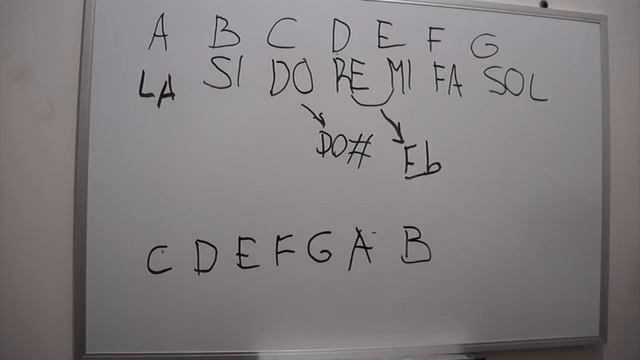 A B C D E F G
LA SI DO RE MI FA SOL
DO# Eb
C D E F G A B